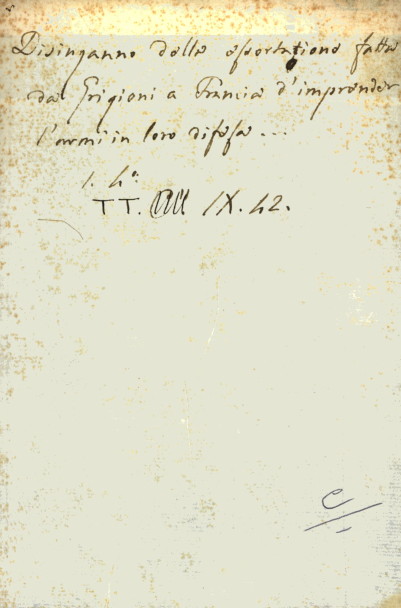 Disinganno della esortatione fatta
da Grigioni a Francia d'imprender
l'armi in loro difesa...
1. 4°.
TT. IX. 42.
C